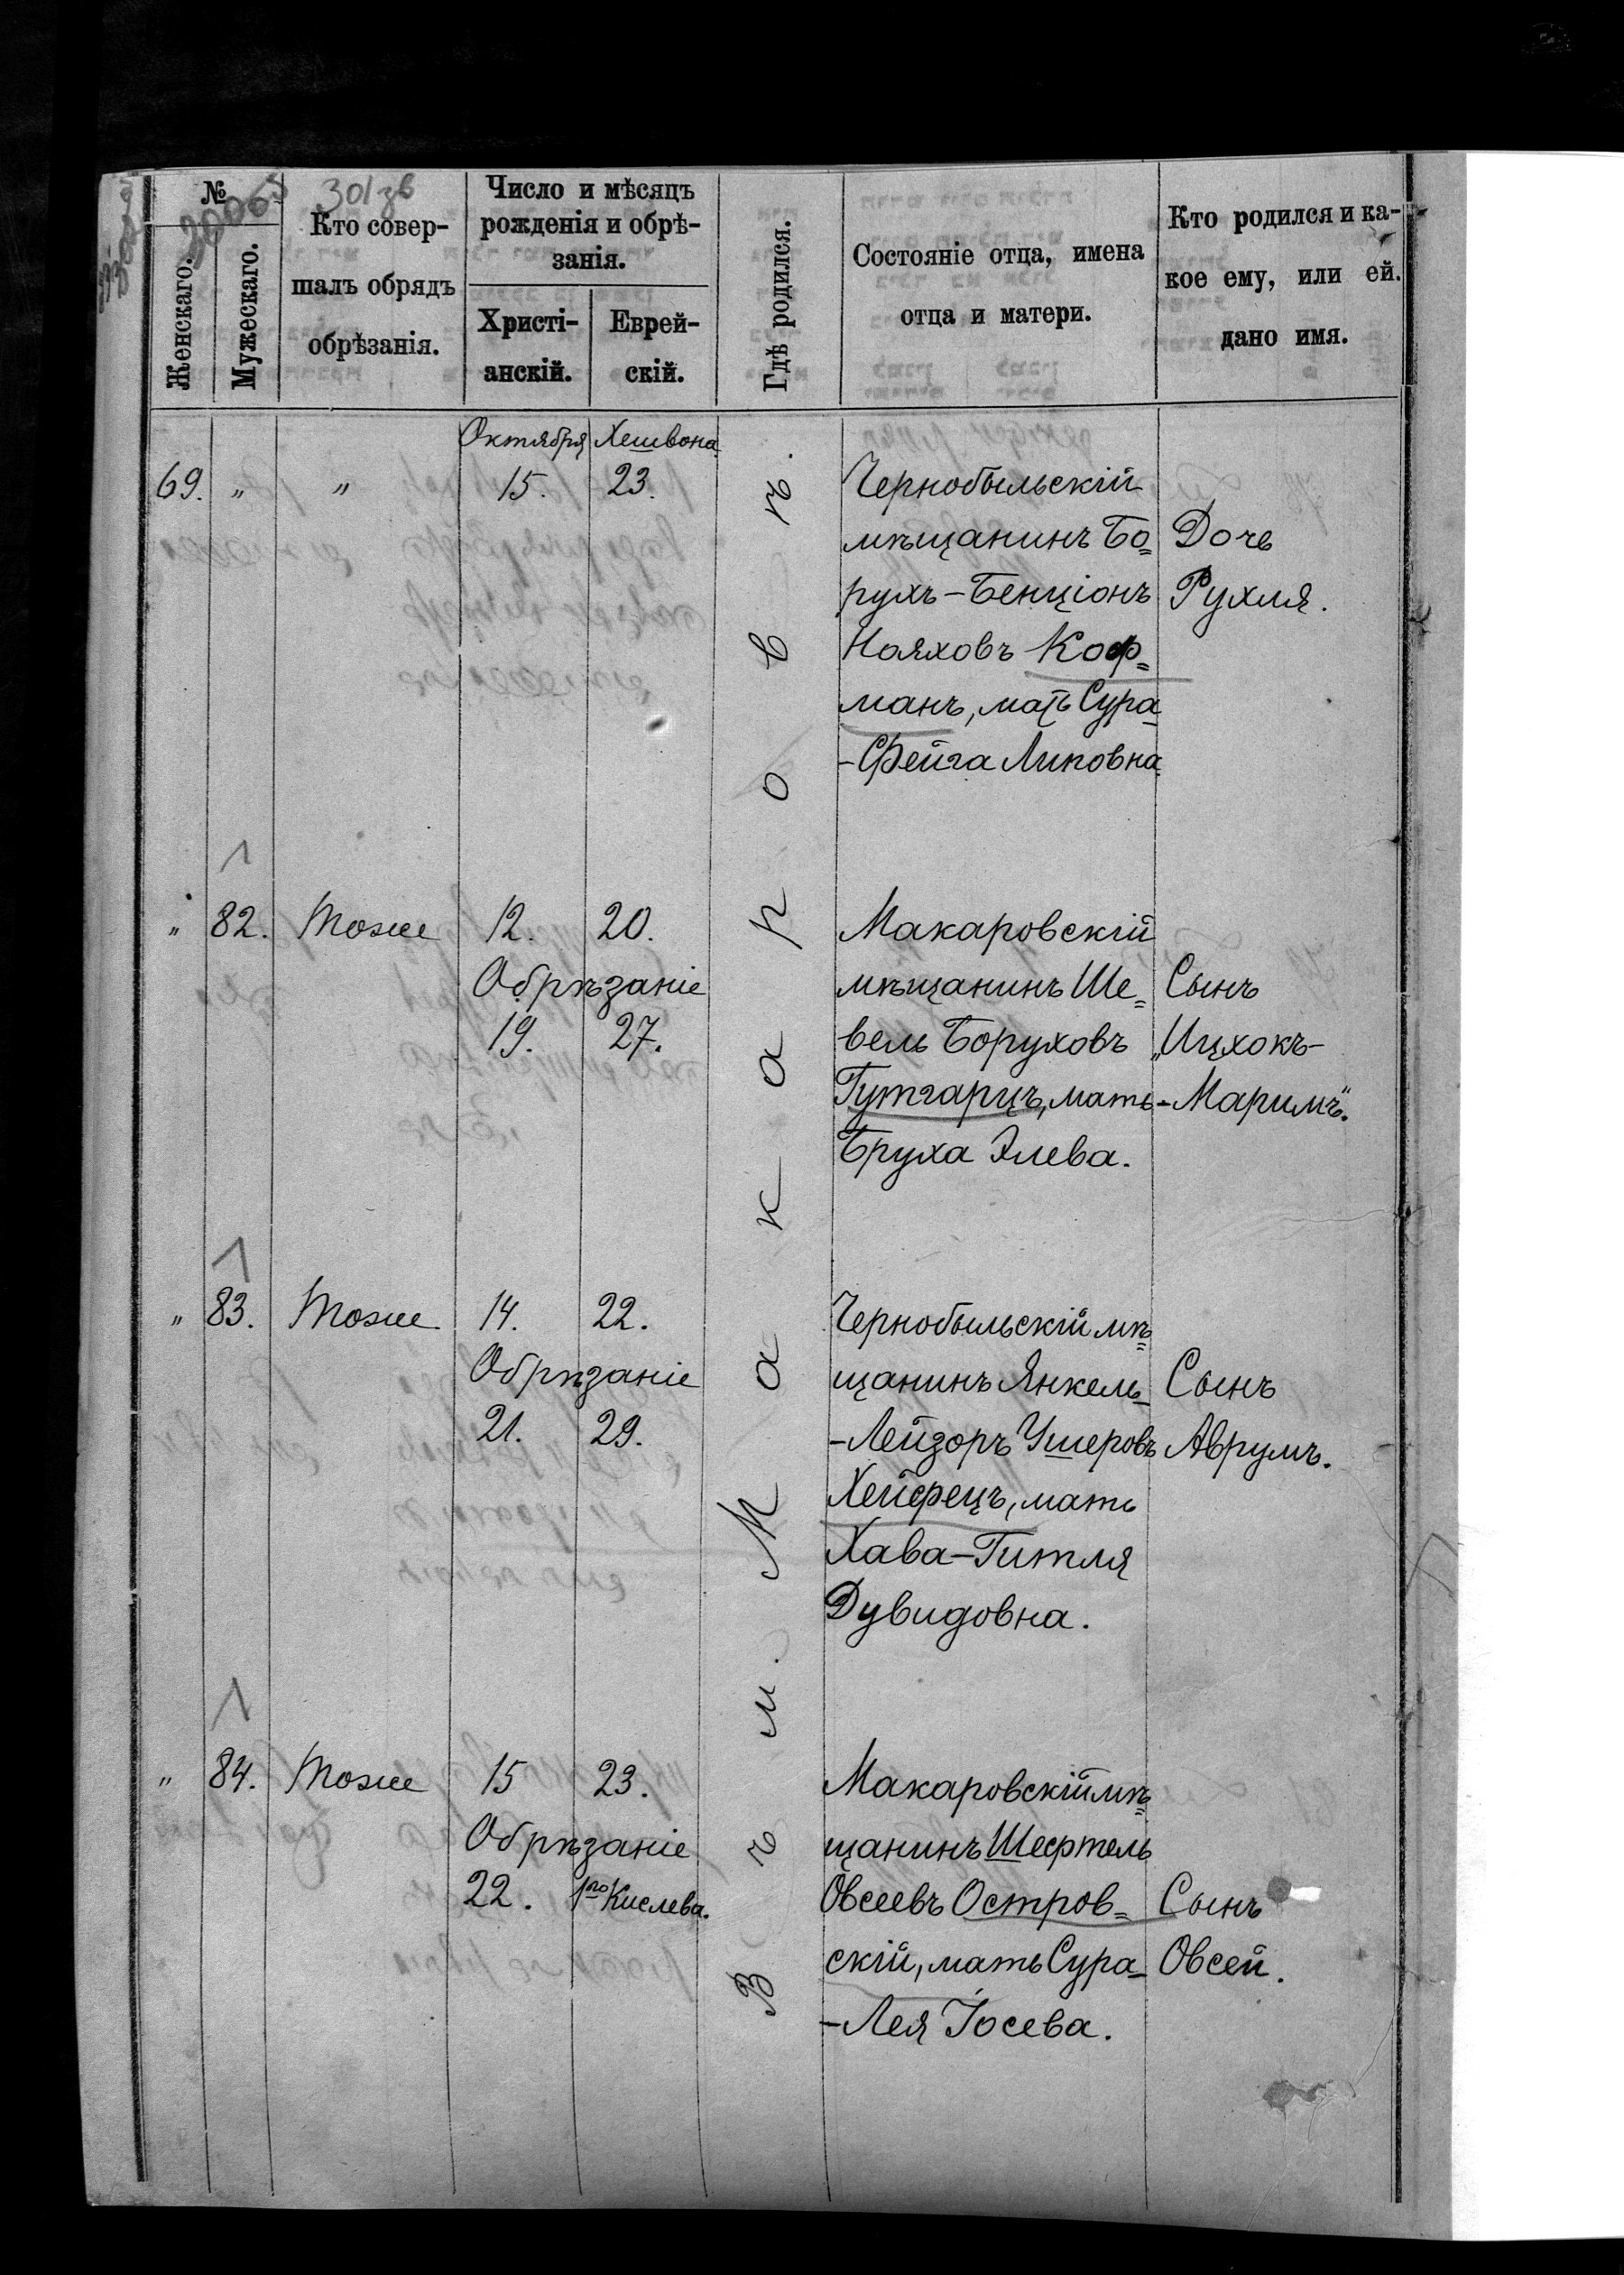 №
Женскаго.
Мужескаго.
Кто совер-
шалъ обрядъ
обрѣзанія.
Число и мѣсяцъ
рожденія и обрѣ-
занія.
Христі-
анскій.
Еврей-
скій.
Гдѣ родился.
Состояніе отца, имена
отца и матери.
Кто родился и ка-
кое ему, или ей.
дано имя.
301зв
Октября Хешвона
69. „ „ 15. 23.
Чернобыльскій
мѣщанинъ Бо=
рухъ-Бенціонъ
Нояховъ Коф=
манъ, мать Сура
-Фейга Липовна
Дочь
Рухля.
„ 82. Тоже 12. 20.
Обрѣзаніе
19. 27.
Макаровскій
мѣщанинъ Ше=
вель Боруховъ
Гутгарцъ, мать
Бруха Элева.
Сынъ
„Ицхокъ-
-Маримъ“.
„ 83. Тоже 14. 22.
Обрѣзаніе
21. 29.
Чернобыльскій мѣ=
щанинъ Янкель
-Лейзоръ Ушеровъ
Хейфецъ, мать
Хава-Гитля
Дувидовна.
Сынъ
Аврумъ.
„ 84. Тоже 15 23.
Обрѣзаніе
22. 1го Кислева.
Макаровскій мѣ=
щанинъ Шефтель
Овсеевъ Остров=
скій, мать Сура
-Лея Іосева.
Сынъ
Овсей.
Въ м. Макаровѣ.